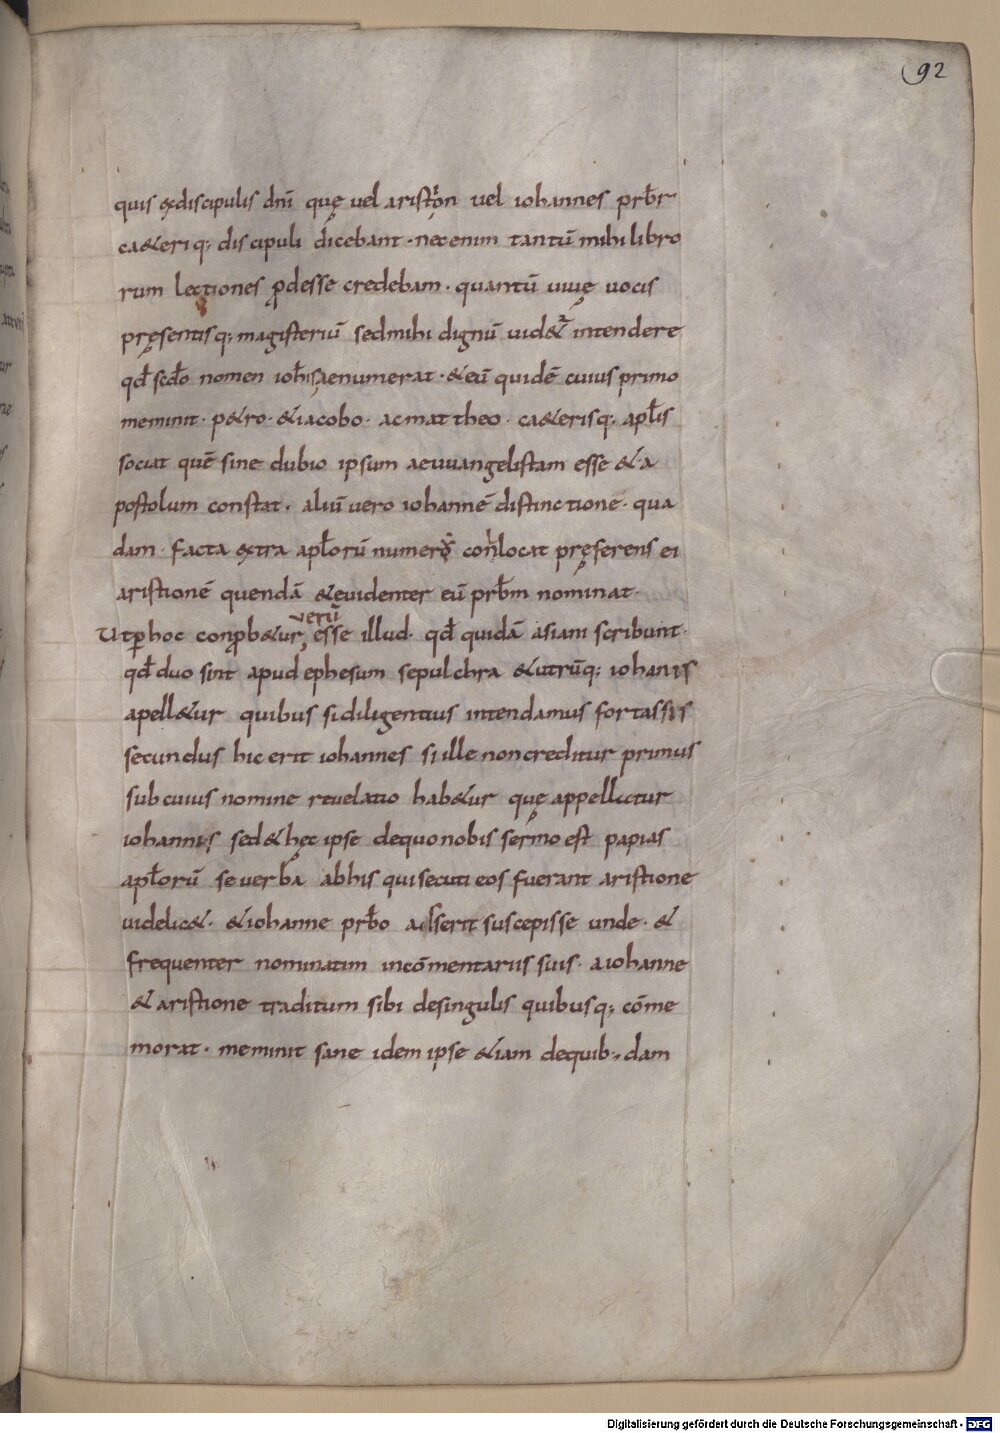 92
quis exdiscipulis dnī quę vel aristion vel iohannes prb̄r
ca&eriq; discipuli dicebant · necenim tantū mihi libro
rum lectiones ꝓdesse credebam · quantū vivę vocis
pręsentisq; magisteriū sedmihi dignū vid&ur intendere
qd̄ scd̄o nomen ioh̄is enumerat · &eū quidē cuius primo
meminit · p&ro · &iacobo · acmattheo · ca&erisq; apl̄is
sociat quē sine dubio ipsum aeuuangelistam esse & a
postolum constat · aliū vero iohannē distinctione · qua
dam · facta extra apl̄orū numerū conlocat pręferens ei
aristionē quendā &evidenter eū prb̄m nominat ·
Ut ꝑhoc conꝓb&ur, verū esse illud · qd̄ quidā asiani scribunt ·
qd̄ duo sint apud ephesum sepulchra &utrūq; iohannis
apell&ur quibus si diligentius intendamus fortassis
secundus hic erit iohannes si ille noncreditur primus
sub cuius nomine revelatio hab&ur quę appellatur
iohannis sed&hęc ipse dequonobis sermo est papias
apl̄orū se verba abhis quisecuti eos fuerant aristione
videlic& · &iohanne prb̄o adserit suscepisse unde · &
frequenter nominatim incōmentariis suis · aiohanne
& aristione traditum sibi desingulis quibusq; cōme
morat · meminit sane idem ipse &iam dequib; dam
Digitalisierung gefördert durch die Deutsche Forschungsgemeinschaft - DFG